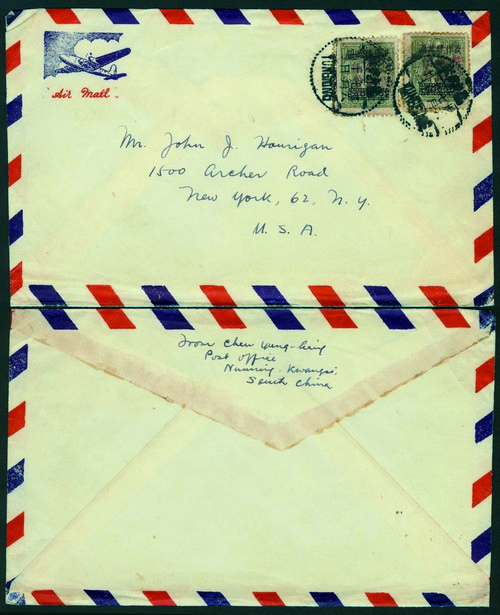 "Air Mail"
Mr. John J. Hourigan
1500 Archer Road
New York, 62, N. Y.
U. S. A.
From Chen
Post Office
Nanning, Kwangsi
South China